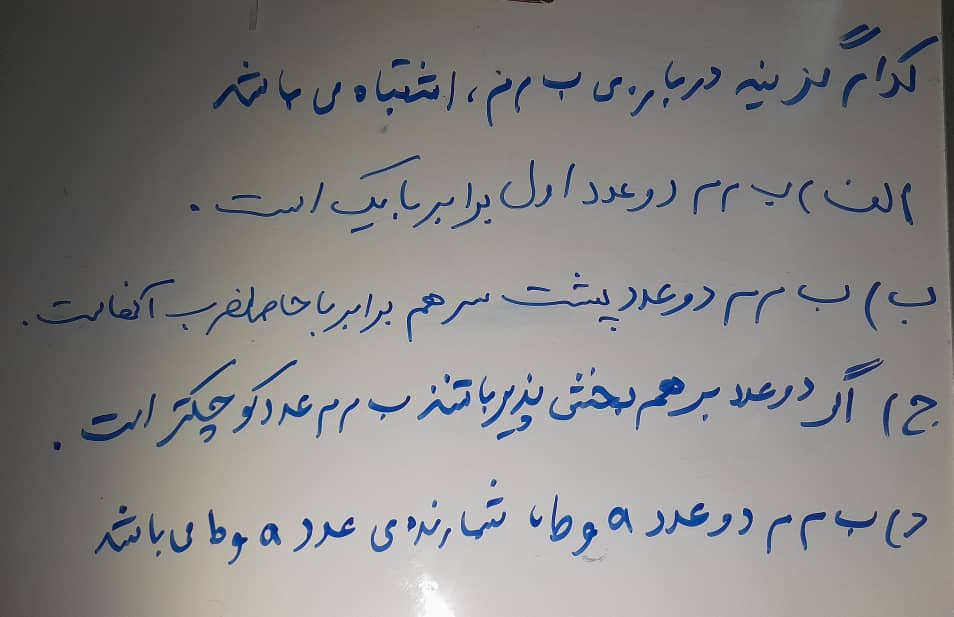 کدام گزینه درباره ی ب م م، اشتباه می باشد
الف) ب م م دو عدد اول برابر با یک است.
ب) ب م م دو عدد پشت سر هم برابر با حاصلضرب آنهاست.
ج) اگر دو عدد بر هم بخش پذیر باشند ب م م عدد کوچکتر است.
د) ب م م دو عدد a و b، شمارنده ی عدد a و b می باشد